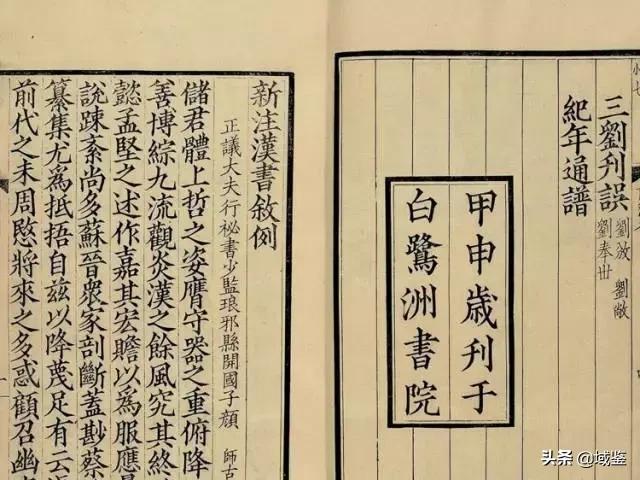 三劉刋誤 劉敞 劉攽 劉奉世
紀年通譜
甲申歳刊于
白鷺洲書院
新注漢書敘例
正議大夫行秘書少監琅邪縣開國子顔 師古
儲君體上哲之姿膺守器之重俯降
善博綜九流觀炎漢之餘風究其終
懿孟堅之述作嘉其宏贍以爲服應
說踈紊尚多蘇晉衆家剖斷蓋尠蔡
纂集尤爲抵捂自兹以降蔑足有云
前代之未周愍將來之多惑顧召幽
头条 @域鉴